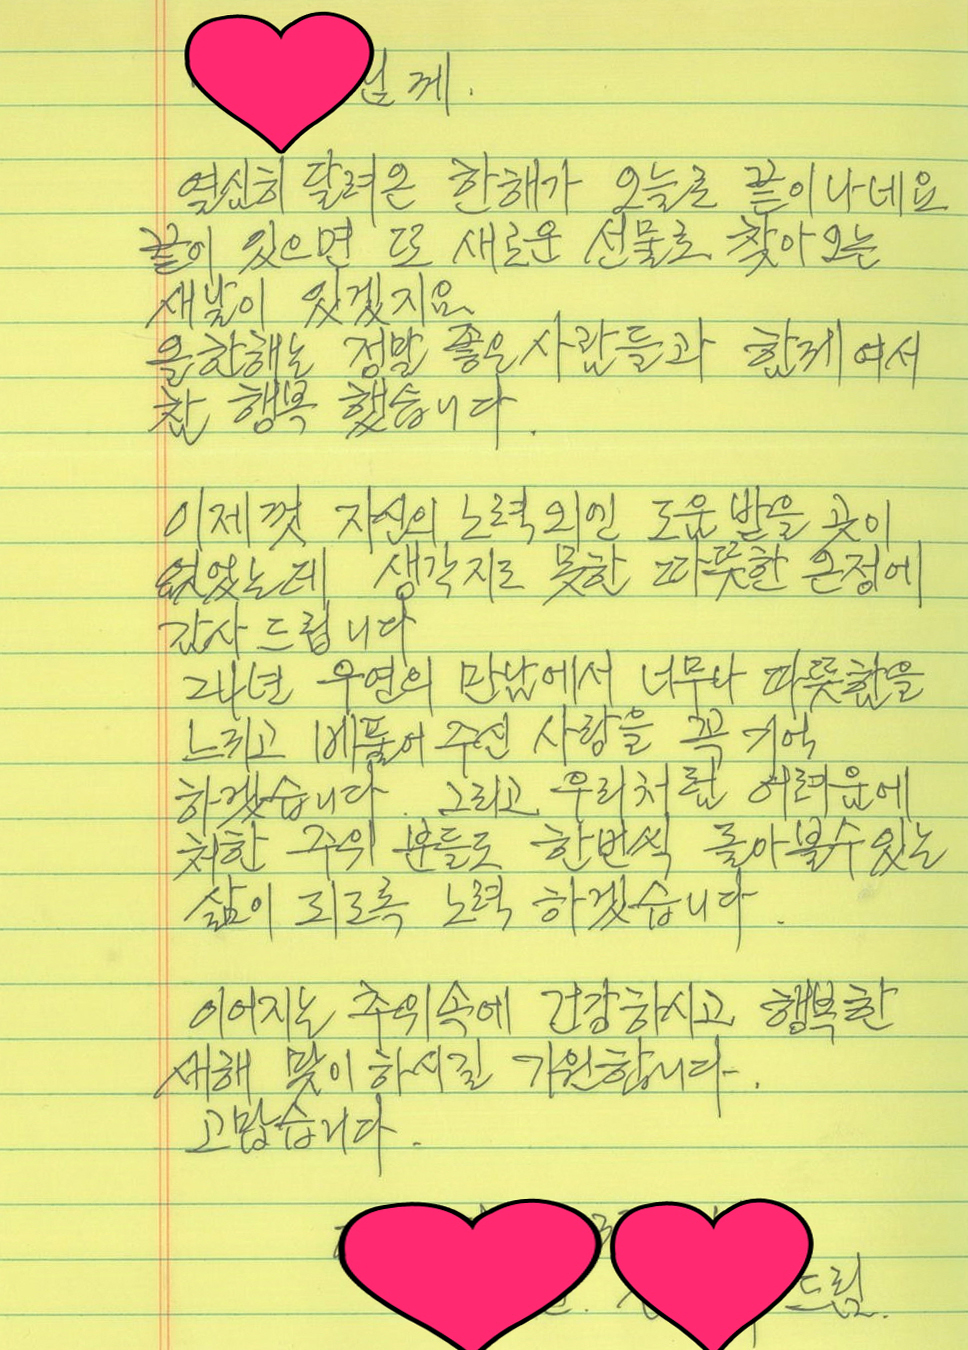 님께.
열심히 달려온 한해가 오늘로 끝이나네요
끝이 있으면 또 새로운 선물로 찾아오는
새날이 있겠지요
올한해는 정말 좋은사람들과 함께여서
참 행복 했습니다.
이제껏 자신의 노력외엔 도움받을 곳이
없었는데 생각지도 못한 따뜻한 온정에
감사드립니다
그냥 우연의 만남에서 너무나 따뜻함을
느끼고 베풀어주신 사랑을 꼭 기억
하겠습니다. 그리고 우리처럼 어려움에
처한 주위 분들도 한번씩 돌아볼수있는
삶이 되도록 노력 하겠습니다.
이어지는 추위속에 건강하시고 행복한
새해 맞이하시길 기원합니다.
고맙습니다.
드림.